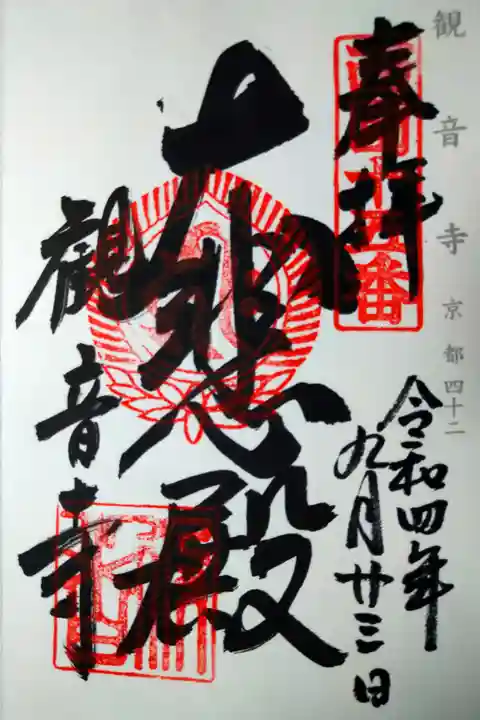 観音寺 京都四十二
奉拝
令和四年
九月廿三日
大悲殿
觀音寺